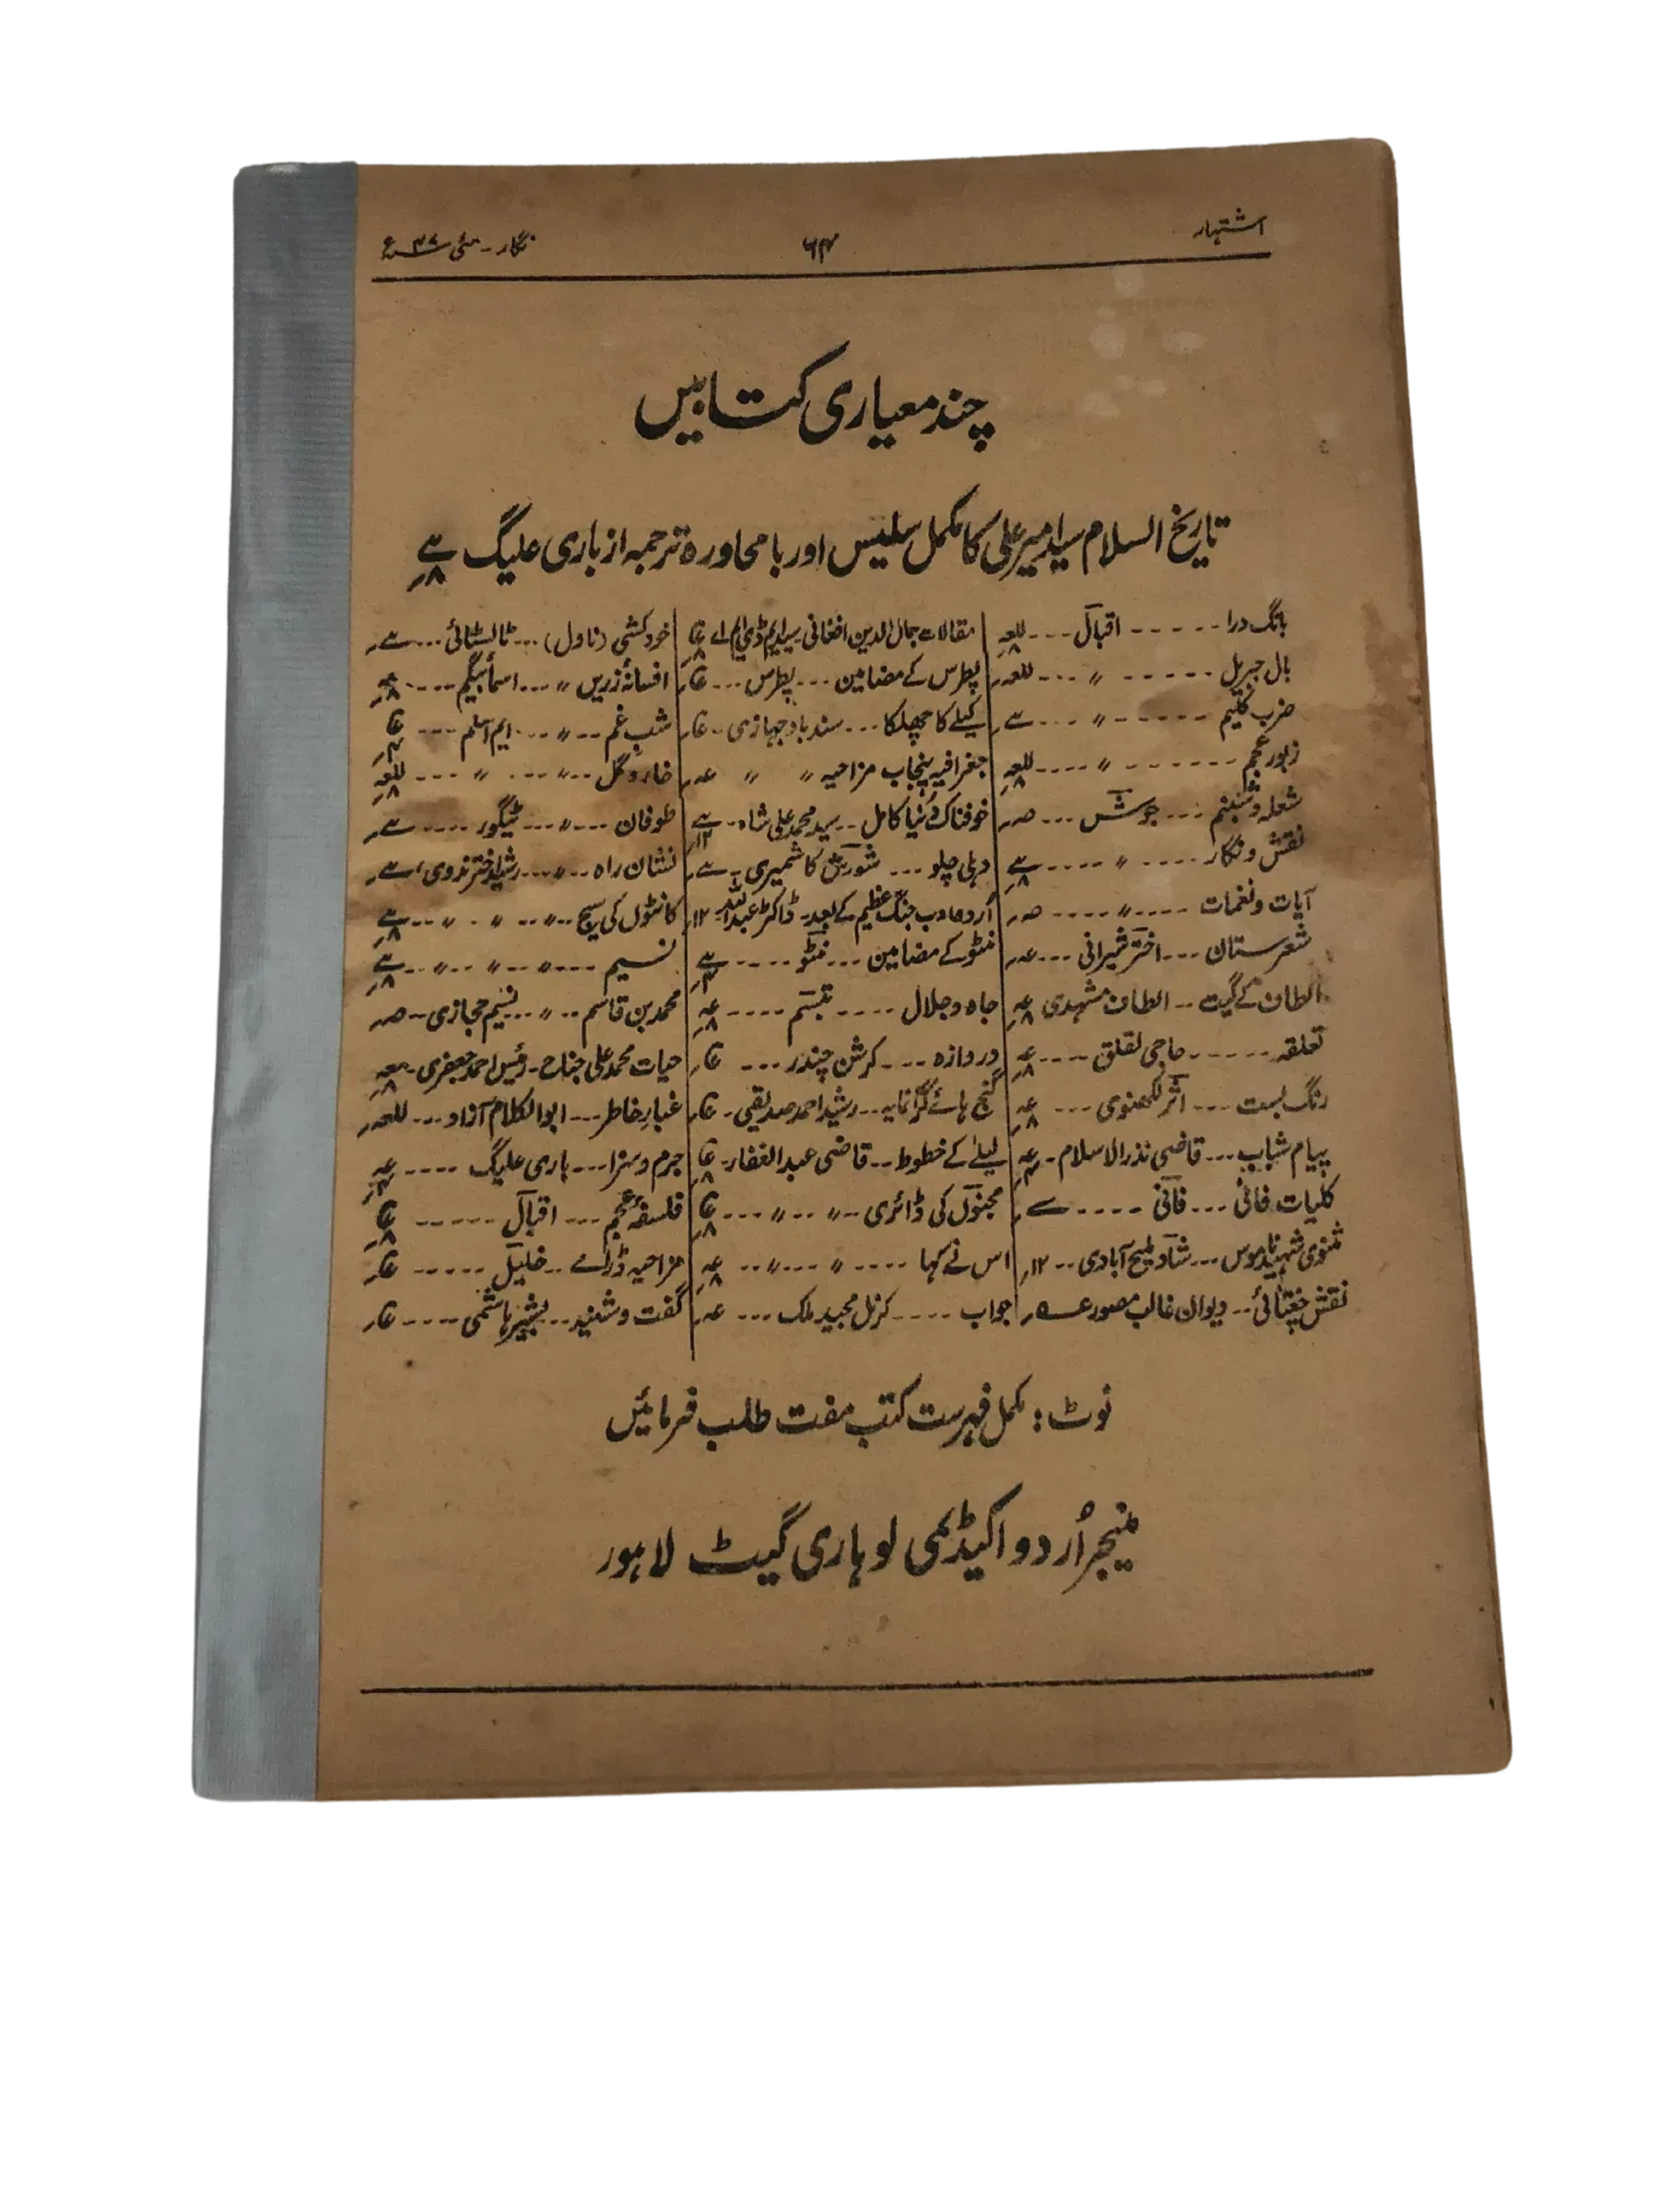 اشتہار
۶۴
نگار۔ مئی ۴۷ء
چند معیاری کتابیں
تاریخ السلام سید امیر علی کا مکمل سلیس اور با محاورہ ترجمہ از باری علیگ
بانگ درا ------ اقبال ---
بال جبریل ------ 〃 ---
ضرب کلیم ------ 〃 ---
زبور عجم ------- 〃 ----
شعلہ و شبنم --- جوش ---
نقش و نگار ---- 〃 ----
آیات و نغمات ---- 〃 ----
شعرستان --- اختر شیرانی ---
الطاف کے گیت -- الطاف مشہدی
تعلقہ ------ حاجی لقلق ----
رنگ بست --- اثر لکھنوی ---
پیام شباب --- قاضی نذر الاسلام -
کلیات فانی --- فانی ----
مثنوی شہید ناموس --- شاد ملیح آبادی -- ۱۲؍
نقش چغتائی -- دیوان غالب مصور
مقالات جمال الدین افغانی سید ایم ڈی ایم اے
پطرس کے مضامین --- پطرس ---
کیلے کا چھلکا --- سندباد جہازی -
جغرافیہ پنجاب مزاحیہ 〃 〃
خوفناک دنیا کامل -- سید محمد علی شاہ -
دہلی چلو --- شورش کاشمیری -
اردو ادب جنگ عظیم کے بعد - ڈاکٹر عبداللہ ۱۲؍
منٹو کے مضامین --- منٹو ----
جاہ و جلال ---- تبسم ----
دروازہ --- کرشن چندر ---
گنج ہائے گرانمایہ -- رشید احمد صدیقی -
لیلےٰ کے خطوط -- قاضی عبدالغفار -
مجنوں کی ڈائری - 〃 -- 〃 ---
اس نے کہا ---- 〃 --- 〃 --
جواب ---- کرنل مجید ملک ---
خودکشی (ناول) --- ٹالسٹائی ---
افسانۂ زریں 〃 --- اسما بیگم ----
شب غم -- 〃 --- ایم اسلم ---
خار و گل -- 〃 --- 〃 ---
طوفان --- 〃 --- ٹیگور ----
نشان راہ -- 〃 --- رشید اختر ندوی
کانٹوں کی سیج -- 〃 -- 〃 - 〃 --
نسیم --- 〃 -- 〃 -- 〃 --
محمد بن قاسم -- 〃 --- نسیم حجازی --
حیات محمد علی جناح - رئیس احمد جعفری -
غبار خاطر --- ابو الکلام آزاد ---
جرم و سزا --- باری علیگ ----
فلسفۂ عجم --- اقبال ------
مزاحیہ ڈرامے -- خلیل -----
گفت و شنید -- بشیر ہاشمی ----
نوٹ: مکمل فہرست کتب مفت طلب فرمائیں
منیجر اُردو اکیڈیمی لوہاری گیٹ لاہور